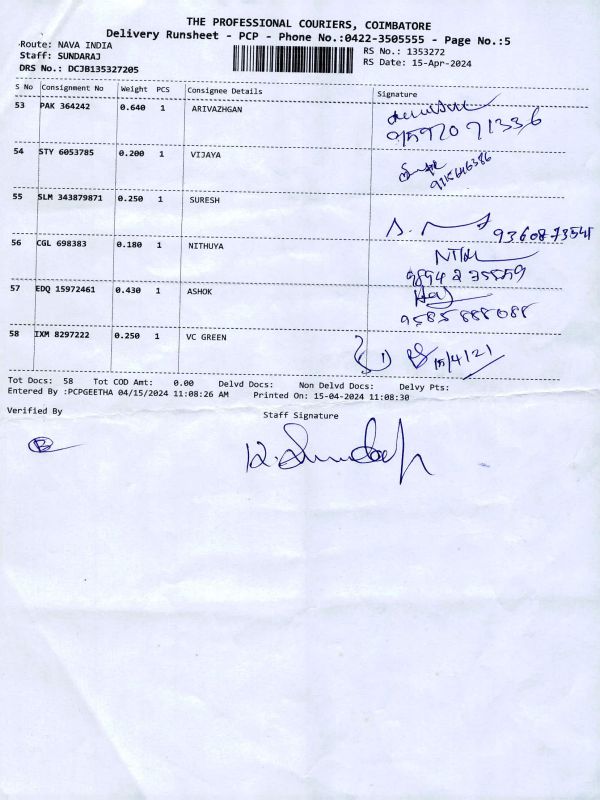 THE PROFESSIONAL COURIERS, COIMBATORE
Delivery Runsheet - PCP - Phone No.:0422-3505555 - Page No.:5
Route: NAVA INDIA
RS No.: 1353272
Staff: SUNDARAJ
RS Date: 15-Apr-2024
DRS No.: DCJB135327205
S No Consignment No Weight PCS Consignee Details Signature
53 PAK 364242 0.640 1 ARIVAZHGAN
9597071336
54 STY 6053785 0.200 1 VIJAYA
55 SLM 343879871 0.250 1 SURESH
9360873541
56 CGL 698383 0.180 1 NITHUYA
9894275559
57 EDQ 15972461 0.430 1 ASHOK
9585888088
58 IXM 8297222 0.250 1 VC GREEN
15/4/21
Tot Docs: 58 Tot COD Amt: 0.00 Delvd Docs: Non Delvd Docs: Delvy Pts:
Entered By :PCPGEETHA 04/15/2024 11:08:26 AM Printed On: 15-04-2024 11:08:30
Verified By
Staff Signature